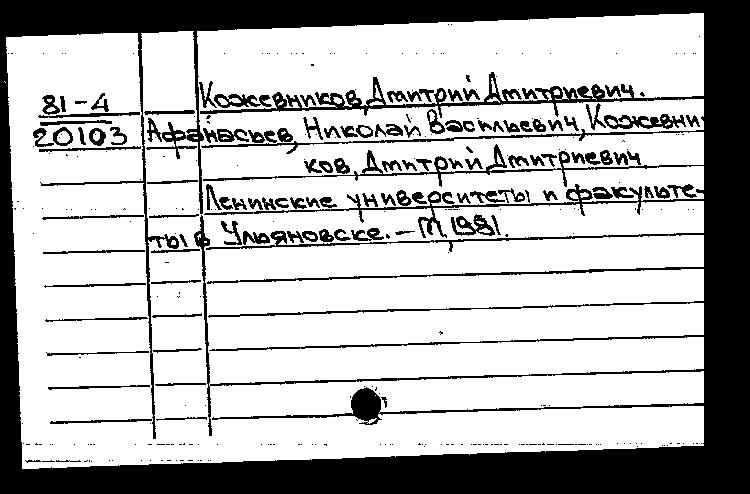 Кожевников, Дмитрий Дмитриевич.
81-4
20103
Афанасьев, Николай Васильевич, Кожевни-
ков, Дмитрий Дмитриевич
Ленинские университеты и факульте-
ты в Ульяновске. — М, 1981.